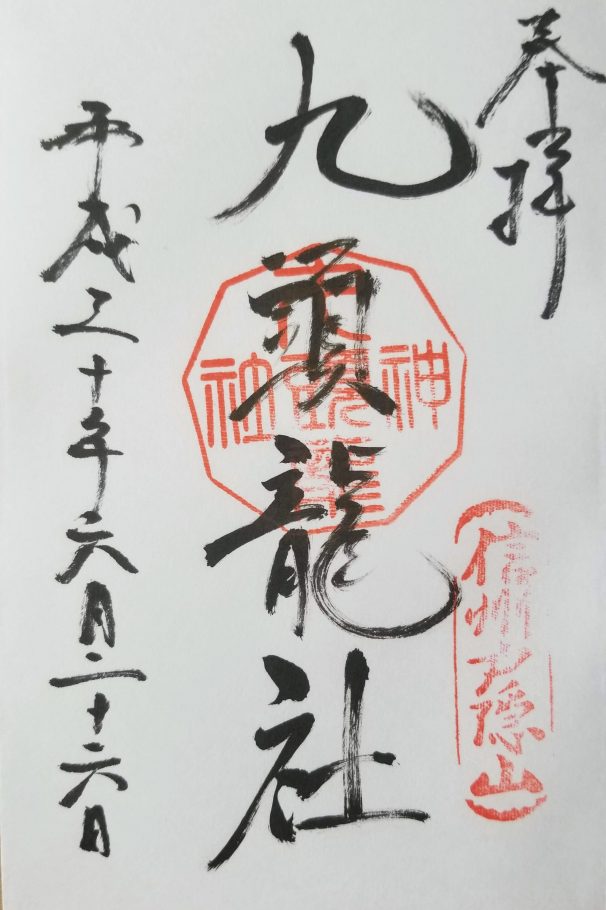 奉拝
信州戸隠山
九頭龍社
平成三十年六月二十六日